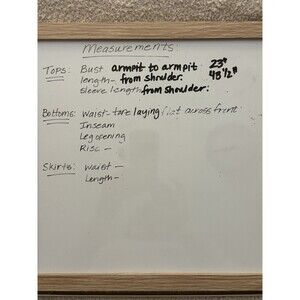 Measurements
Tops: Bust armpit to armpit 23"
length- from shoulder: 43 1/2"
Sleeve length from shoulder:
Bottoms: Waist- laying flat across front:
Inseam
Leg opening
Rise -
Skirts: Waist -
Length -